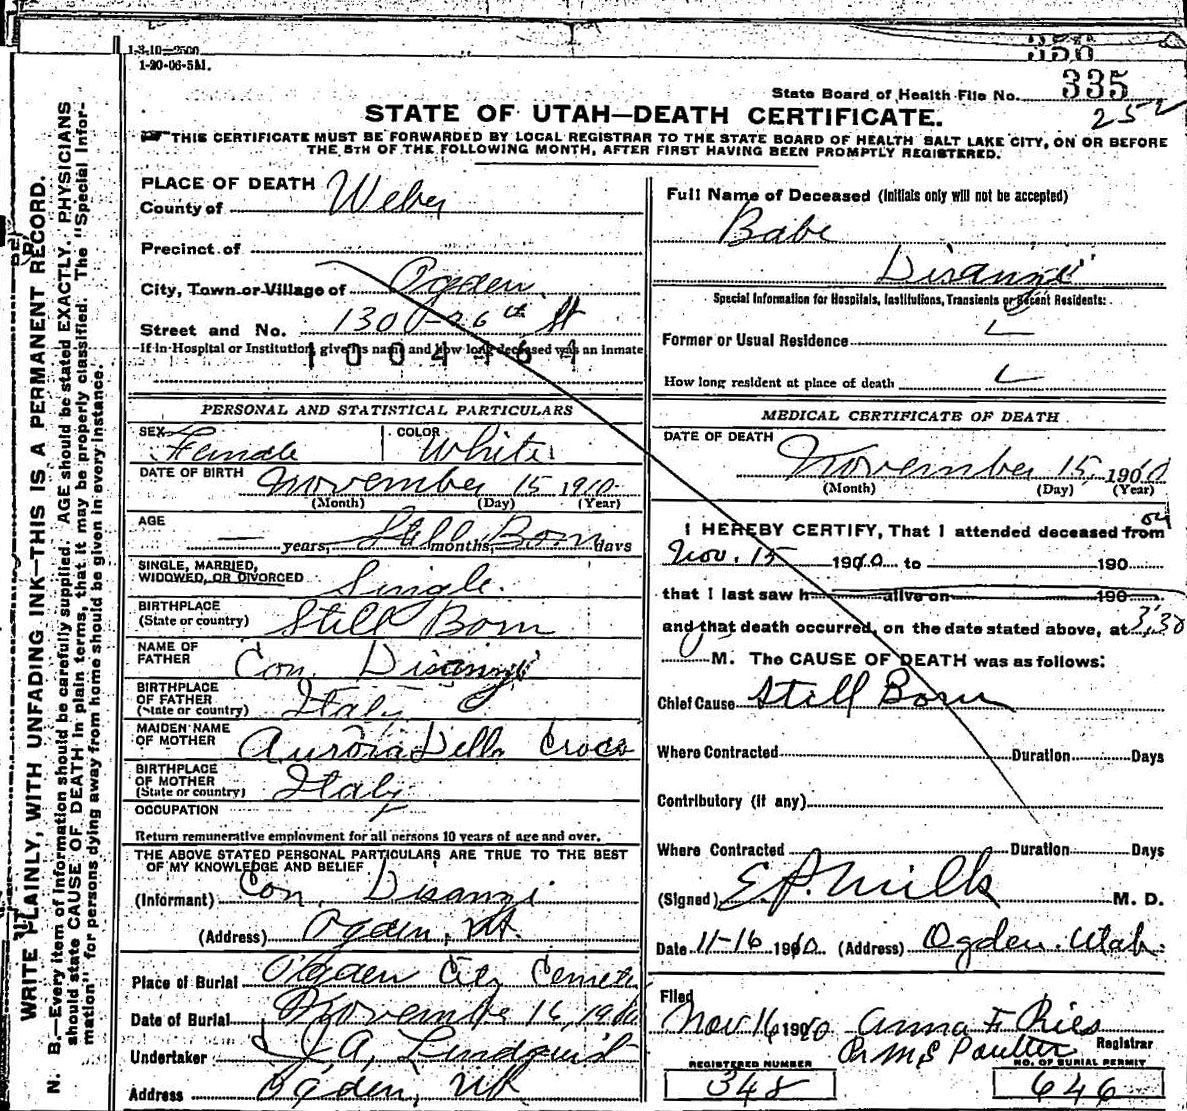 1-3-10—2500
1-20-06-5M.
356
State Board of Health File No. 335
252
STATE OF UTAH—DEATH CERTIFICATE.
THIS CERTIFICATE MUST BE FORWARDED BY LOCAL REGISTRAR TO THE STATE BOARD OF HEALTH SALT LAKE CITY, ON OR BEFORE
THE 5TH OF THE FOLLOWING MONTH, AFTER FIRST HAVING BEEN PROMPTLY REGISTERED.
WRITE PLAINLY, WITH UNFADING INK—THIS IS A PERMANENT RECORD.
N. B.—Every item of information should be carefully supplied. AGE should be stated EXACTLY. PHYSICIANS
should state CAUSE OF DEATH in plain terms, that it may be properly classified. The "Special Infor-
mation" for persons dying away from home should be given in every instance.
PLACE OF DEATH
County of Weber
Precinct of
City, Town or Village of Ogden
Street and No. 130 - 26th St
If in Hospital or Institution, give its name and how long deceased was an inmate
PERSONAL AND STATISTICAL PARTICULARS
SEX Female COLOR White
DATE OF BIRTH November 15 1910
(Month) (Day) (Year)
AGE — years, Still months, Born days
SINGLE, MARRIED,
WIDOWED, OR DIVORCED Single.
BIRTHPLACE
(State or country) Still Born
NAME OF
FATHER Con. Disanzi
BIRTHPLACE
OF FATHER
(State or country) Italy
MAIDEN NAME
OF MOTHER Aurora Della Croce
BIRTHPLACE
OF MOTHER
(State or country) Italy
OCCUPATION
Return remunerative employment for all persons 10 years of age and over.
THE ABOVE STATED PERSONAL PARTICULARS ARE TRUE TO THE BEST
OF MY KNOWLEDGE AND BELIEF
(Informant) Con. Disanzi
(Address) Ogden, Ut.
Place of Burial Ogden City Cemete
Date of Burial November 16, 1910
Undertaker J. A. Lindquist
Address Ogden, Ut
Full Name of Deceased (Initials only will not be accepted)
Babe
Disanzi
Special Information for Hospitals, Institutions, Transients or Recent Residents:
Former or Usual Residence
How long resident at place of death
MEDICAL CERTIFICATE OF DEATH
DATE OF DEATH
November 15, 1910
(Month) (Day) (Year)
I HEREBY CERTIFY, That I attended deceased from on
Nov. 15 1910 to 190
that I last saw h alive on 190
and that death occurred, on the date stated above, at 3:30
M. The CAUSE OF DEATH was as follows:
Chief Cause Still Born
Where Contracted Duration Days
Contributory (if any)
Where Contracted Duration Days
(Signed) E. P. Mills M. D.
Date 11-16 1910 (Address) Ogden. Utah.
Filed
Nov 16 1910 Anna F Ries
Registrar
REGISTERED NUMBER NO. OF BURIAL PERMIT
348 646